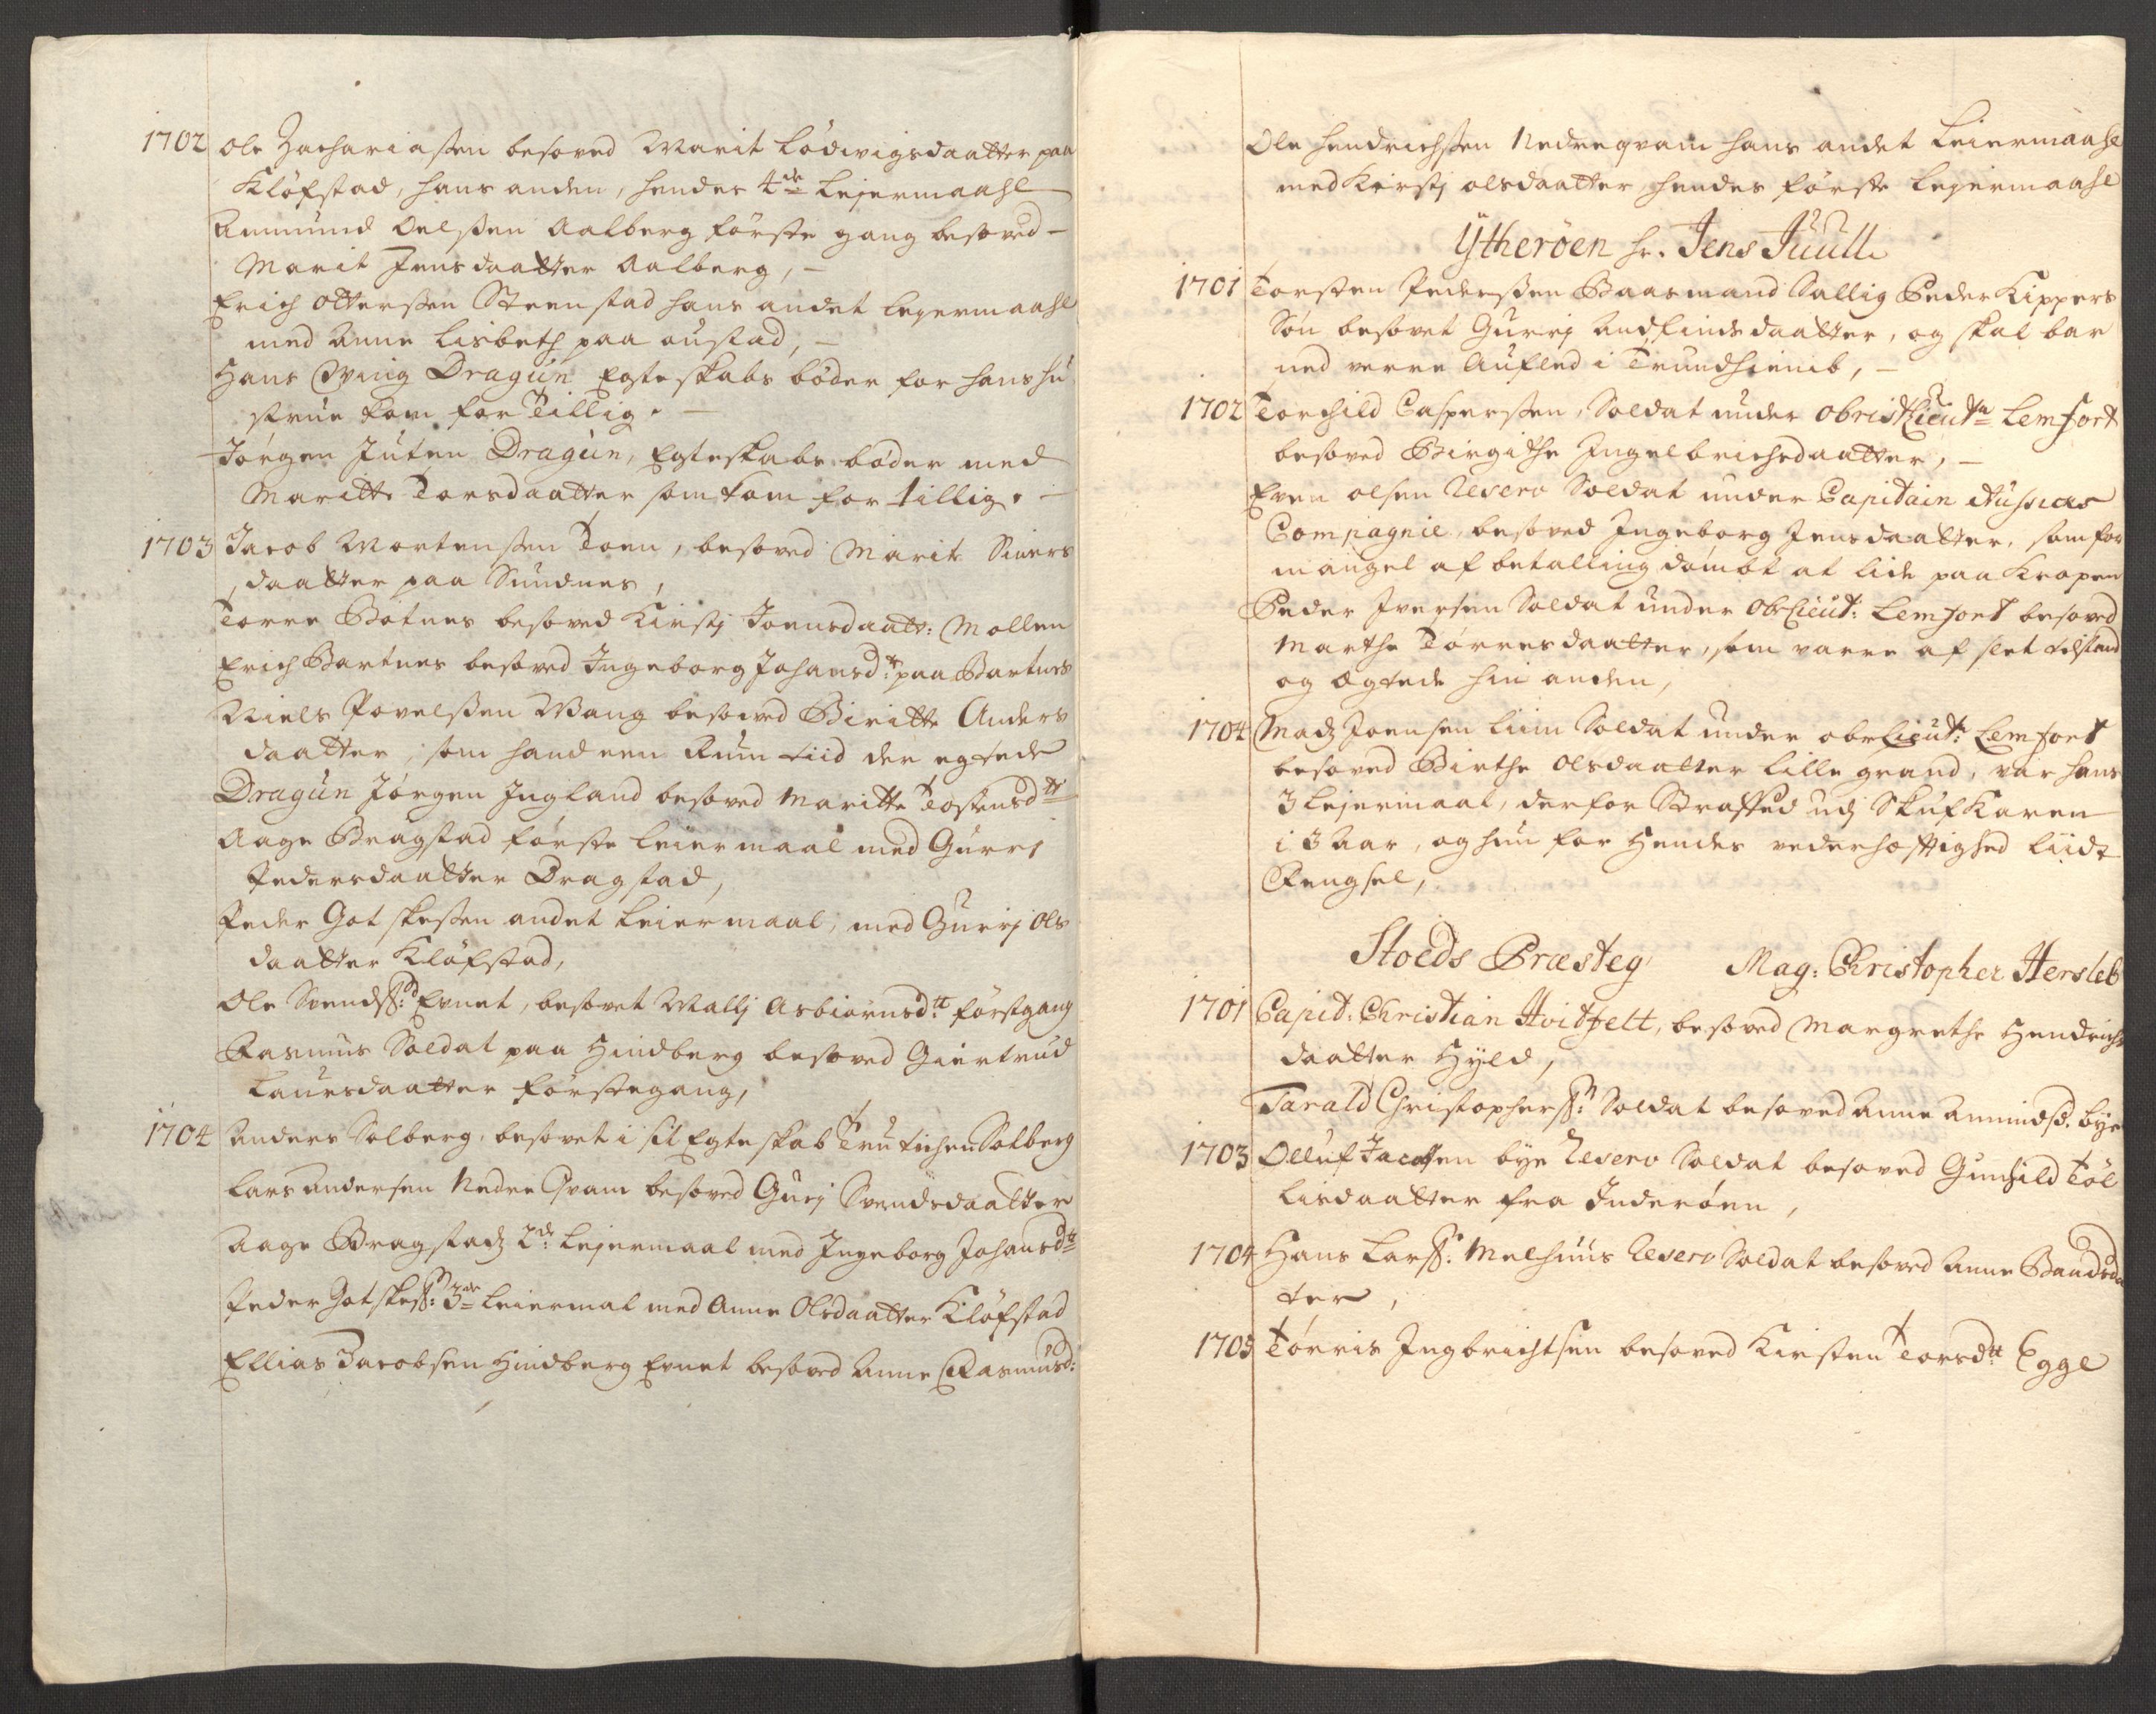 1702 Ole Zachariassen besoved Marit Lødwigsdaatter paa
Kløfstad, hans anden, hendes 4de Lejermaahl
Ammund Oelssen Aalberg første gang besoved -
Marit Jensdaatter Aalberg, -
Erich Ottersen Steenstad hans andet Lejermaahl
med Anne Lisbeth paa Austad, -
Hans Wing Dragun Egteskabs bøder for hans hu
strue kom for Tillig. -
Jørgen Juten Dragun, Egteskabs bøder med
Maritte Torsdaatter som kom for tillig. -
1703 Jacob Mortenssen Toen, besoved Marit Siuers
daatter paa Sundnes,
Torre Botnes besoved Kirstj Joensdaatt: Mollen
Erich Bartnes besoved Ingeborg Johansd: paa Bartnes
Niels Povelssen Wang besoved Biritte Anders
daatter, som hand nen Rum tiid der egtede
Dragun Jørgen Ingland besoved Maritte Tostensdtr
Aage Bragstad første Leiermaal med Gurrj
Pedersdaatter Bragstad,
Peder Gotskessen andet Leiermaal, med Gurrj Ols
daatter Kløfstad,
Ole Svends: Evnet, besovet Mallj Asbiørnsdtt førstgang
Rasmus Soldat paa Hindberg besoved Giertrud
Laursdaatter førstegang,
1704 Anders Solberg, besovet i sit Egteskab Trutichen Solberg
Lars Andersen Nedre Qvam besoved Gurj Svendsdaatter
Aage Bragstadz 2de Lejermaal med Ingeborg Johansdtt
Peder Gotskess: 3de Leiermal med Anne Olsdaatter Kløfstad
Ellias Jacobsen Hindberg Evnet besoved Anne Rasmusd:
Ole Hendrichssen Nedreqvam hans andet Leiermaahl
med Kirstj Olsdaatter, hendes første Lejermaahl
Ytherøen hr. Jens Juull
1701 Torsten Pederssen Baasmand Sallig Peder Kippers
Søn besovet Gurrj Andfindsdaatter, og skal bar
ned verre Aufled i Trundhiemb, -
1702 Torchild Casperssen, Soldat under Obristlieutn Lemfort
besoved Birgithe Ingelbrichsdaatter, -
Even Olsen Resero Soldat under Capitain
Compagnie, besoved Ingeborg Jensdaatter, som for
mangel af betalling dømbt at lide paa Kropen
Peder Iversen Soldat under ObrLieut: Lemfort besoved
Marthe Tørresdaatter, som varre af slet tilstand
og Ægtede hin anden,
1704 Madz Joensen Liim Soldat under obrLieut: Lemfort
besoved Birthe Olsdaatter Lille grand, var hans
3 Lejermaal, derfor Straffed udj Skufkaren
i 3 Aar, og hun for Hendes vederhæfftighed Liidt
Fengsel,
Stoeds Præsteg Mag: Christopher Hersleb
1701 Capit: Christian Hvitfelt, besoved Margrethe Hendrichs
daatter Hyld,
Tarald Christophers: Soldat besoved Anne Amindsd. bye
1703 Olluf Jacobsen bye Resero Soldat besoved Gunhild Tøl
lisdaatter fra Inderøen,
1704 Hans Larss: Melhuus Resero Soldat besoved Anne Baardsda
ter,
1705 Tørris Ingbrichtsen besoved Kirsten Torsdtt Egge